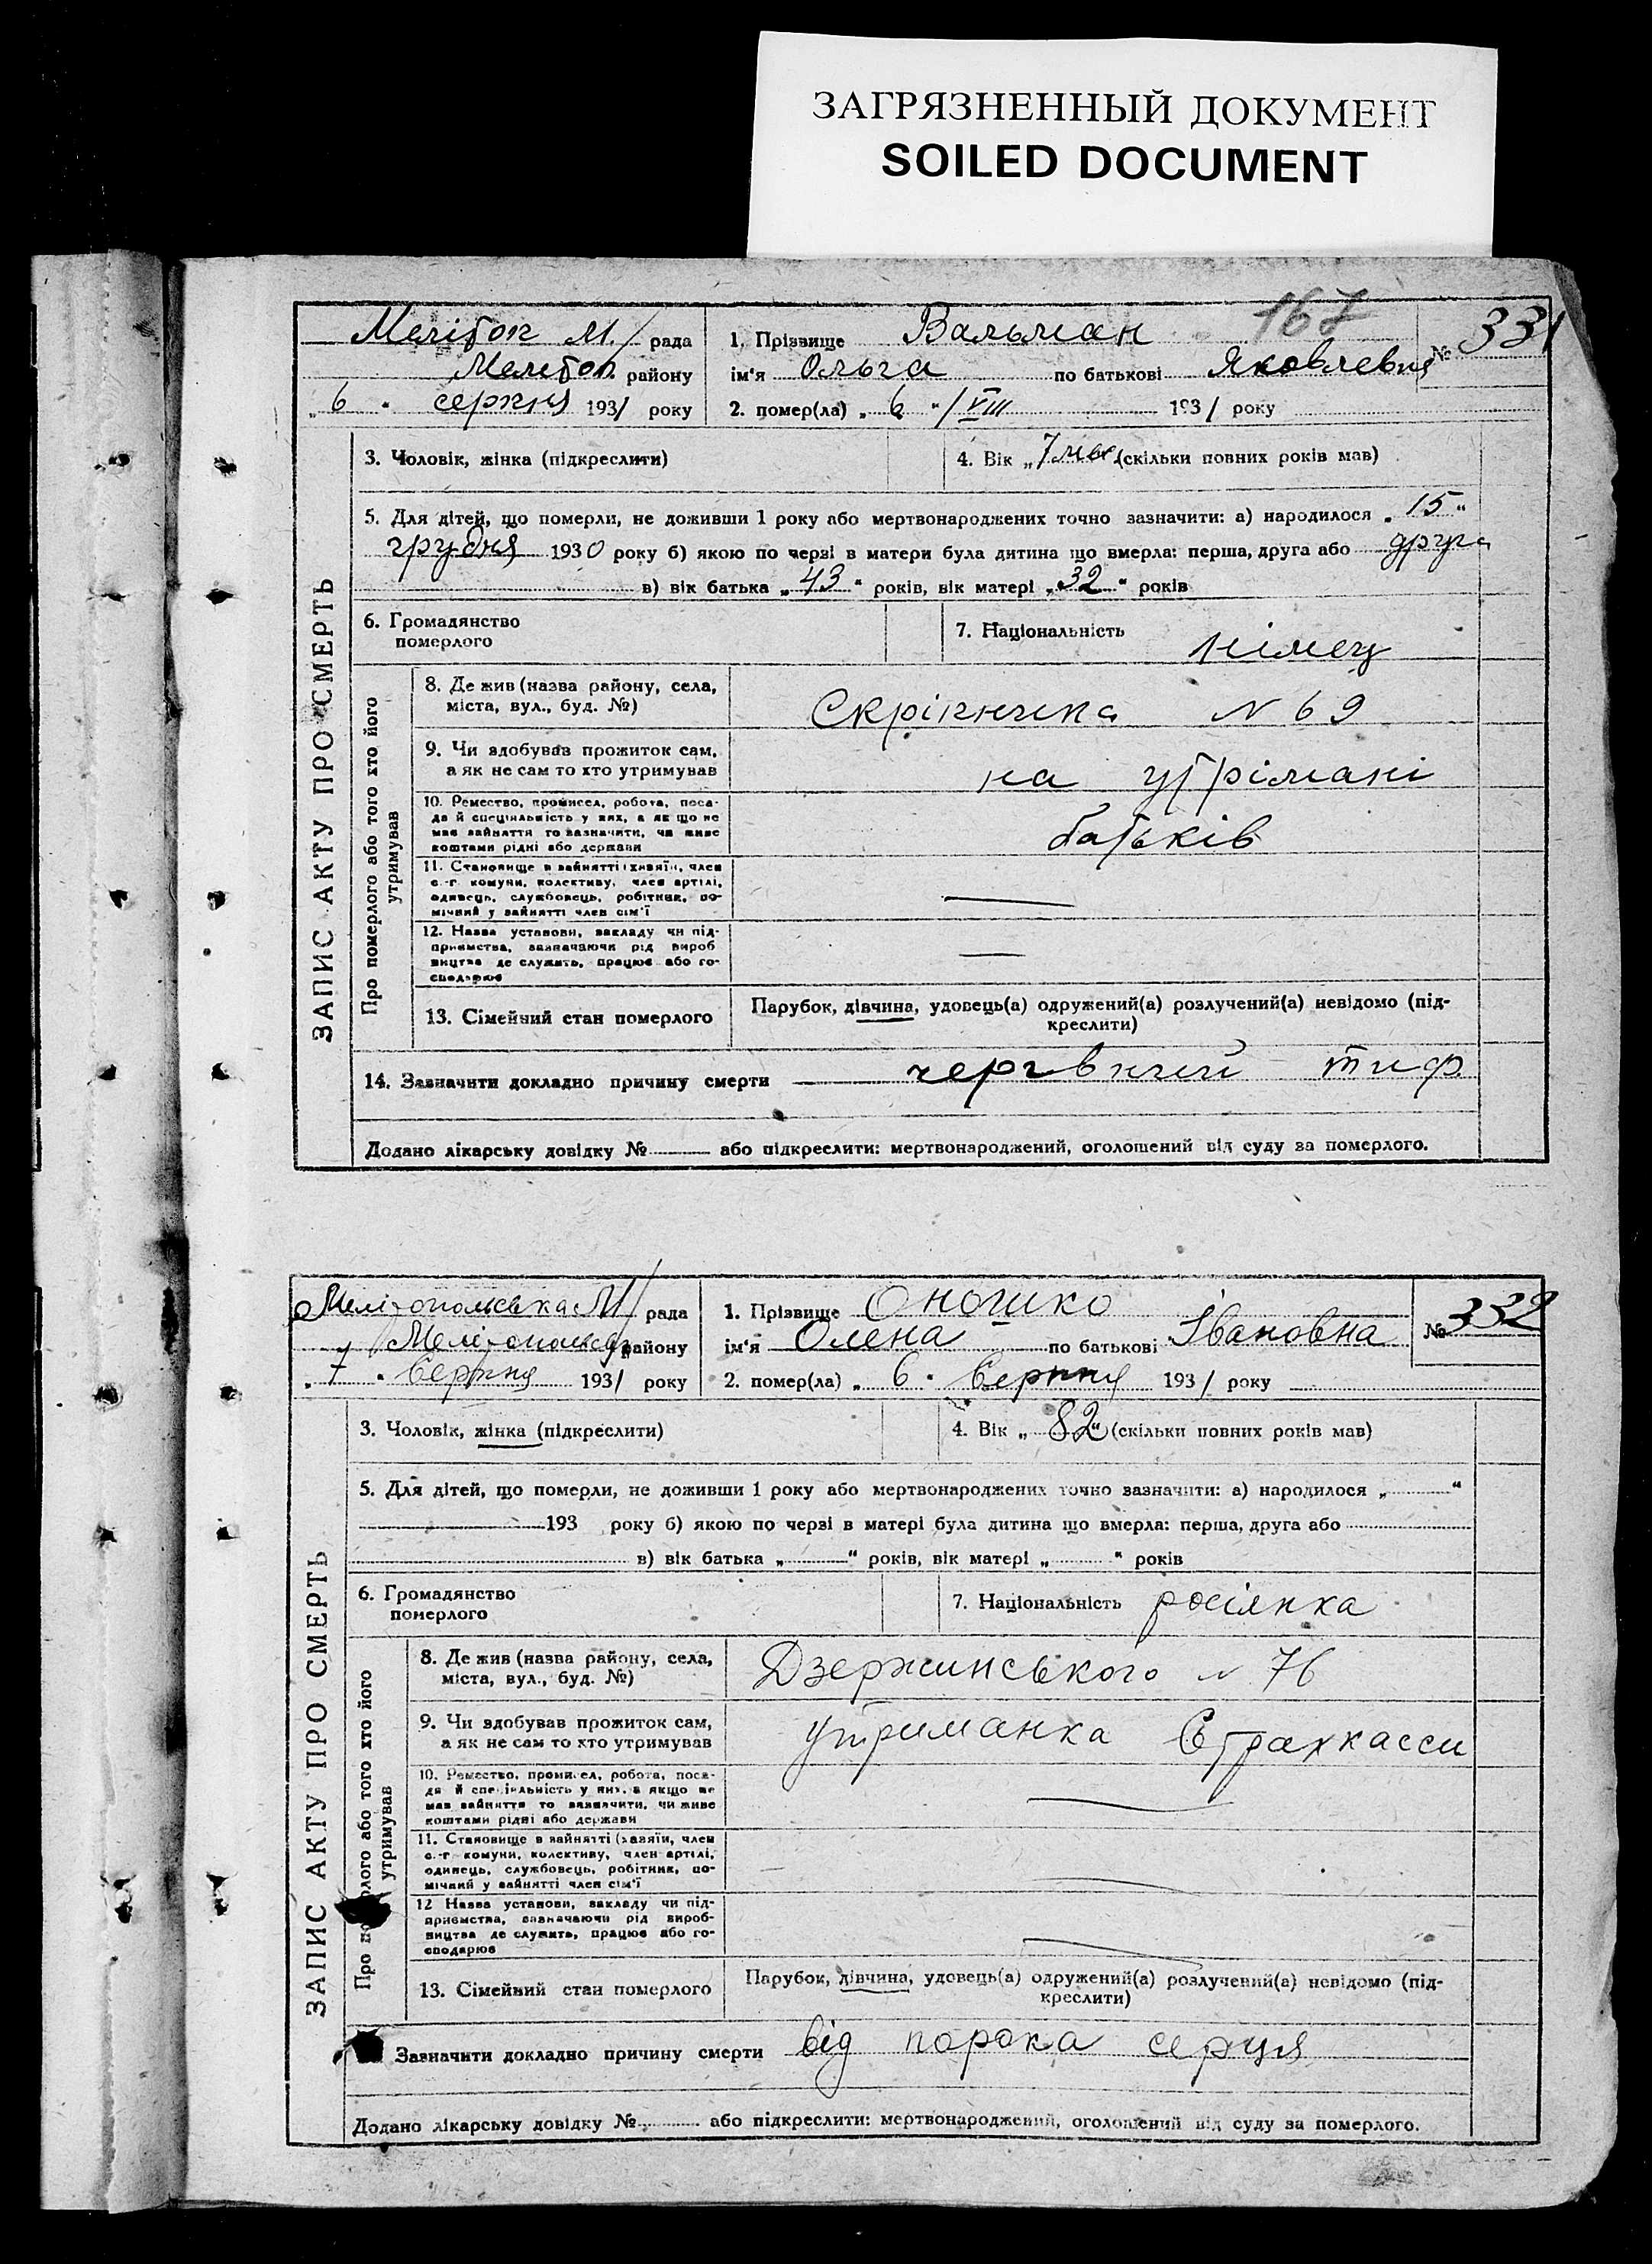 ЗАГРЯЗНЕННЫЙ ДОКУМЕНТ
SOILED DOCUMENT
167
Меліток М/ рада
Мелітоп. району
„6“ серпня 1931 року
1. Прізвище Вальман
№ 331
ім'я Ольга по батькові Яковлевна
2. помер(ла) „6“/VIII 1931 року
ЗАПИС АКТУ ПРО СМЕРТЬ
3. Чоловік, жінка (підкреслити)
4. Вік „7 міс (скільки повних років мав)
5. Для дітей, що померли, не доживши 1 року або мертвонароджених точно зазначити: а) народилося „15“
грудня 1930 року б) якою по черзі в матери була дитина що вмерла: перша, друга або друга
в) вік батька „43“ років, вік матері „32“ років
6. Громадянство
померлого
7. Національність німец
Про померлого або того хто його
утримував
8. Де жив (назва району, села,
міста, вул., буд. №)
Скріпника N 69
9. Чи здобував прожиток сам,
а як не сам то хто утримував
на утрімані
10. Ремество, промисел, робота, поса-
да й спеціяльність у них, а як що не
мав зайняття то зазначити, чи живе
коштами рідні або держави
батьків
11. Становище в зайнятті (хазяїн, член
с.-г. комуни, колективу, член артілі,
одинець, службовець, робітник, по-
мічний у зайнятті член сім'ї
12. Назва установи, закладу чи під-
приємства, зазначаючи рід вироб
ництва де служить, працює або го-
сподарює
13. Сімейний стан померлого
Парубок, дівчина, удовець(а) одружений(а) розлучений(а) невідомо (під-
креслити)
14. Зазначити докладно причину смерти тиф
Додано лікарську довідку № або підкреслити: мертвонароджений, оголошений від суду за померлого.
Мелітопольська М/ рада
Мелітопольск району
„7“ Серпня 1931 року
1. Прізвище Оношко
№ 332
ім'я Олена по батькові Івановна
2. помер(ла) „6“ Серпня 1931 року
ЗАПИС АКТУ ПРО СМЕРТЬ
3. Чоловік, жінка (підкреслити)
4. Вік „82“ (скільки повних років мав)
5. Для дітей, що померли, не доживши 1 року або мертвонароджених точно зазначити: а) народилося „ “
193 року б) якою по черзі в матері була дитина що вмерла: перша, друга або
в) вік батька „ “ років, вік матері „ “ років
6. Громадянство
померлого
7. Національність росіянка
Про померлого або того хто його
утримував
8. Де жив (назва району, села,
міста, вул., буд. №)
Дзержинського N 76
9. Чи здобував прожиток сам,
а як не сам то хто утримував
утриманка Страхкасси
10. Ремество, промисел, робота, поса-
да й спеціяльність у них, а якщо не
мав зайняття то зазначити, чи живе
коштами рідні або держави
11. Становище в зайнятті (хазяїн, член
с.-г комуни, колективу, член артілі,
одинець, службовець, робітник, по-
мічний у зайнятті член сім'ї
12 Назва установи, закладу чи під-
приємства, зазначаючи рід вироб-
ництва де служить, працює або го-
сподарює
13. Сімейний стан померлого
Парубок, дівчина, удовець(а) одружений(а) розлучений(а) невідомо (під-
креслити)
Зазначити докладно причину смерти від порока серця
Додано лікарську довідку № або підкреслити: мертвонароджений, оголошений від суду за померлого.